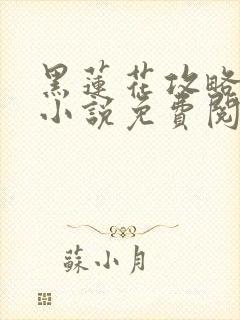 黑蓮花攻略
小說免費閱
蘇小月